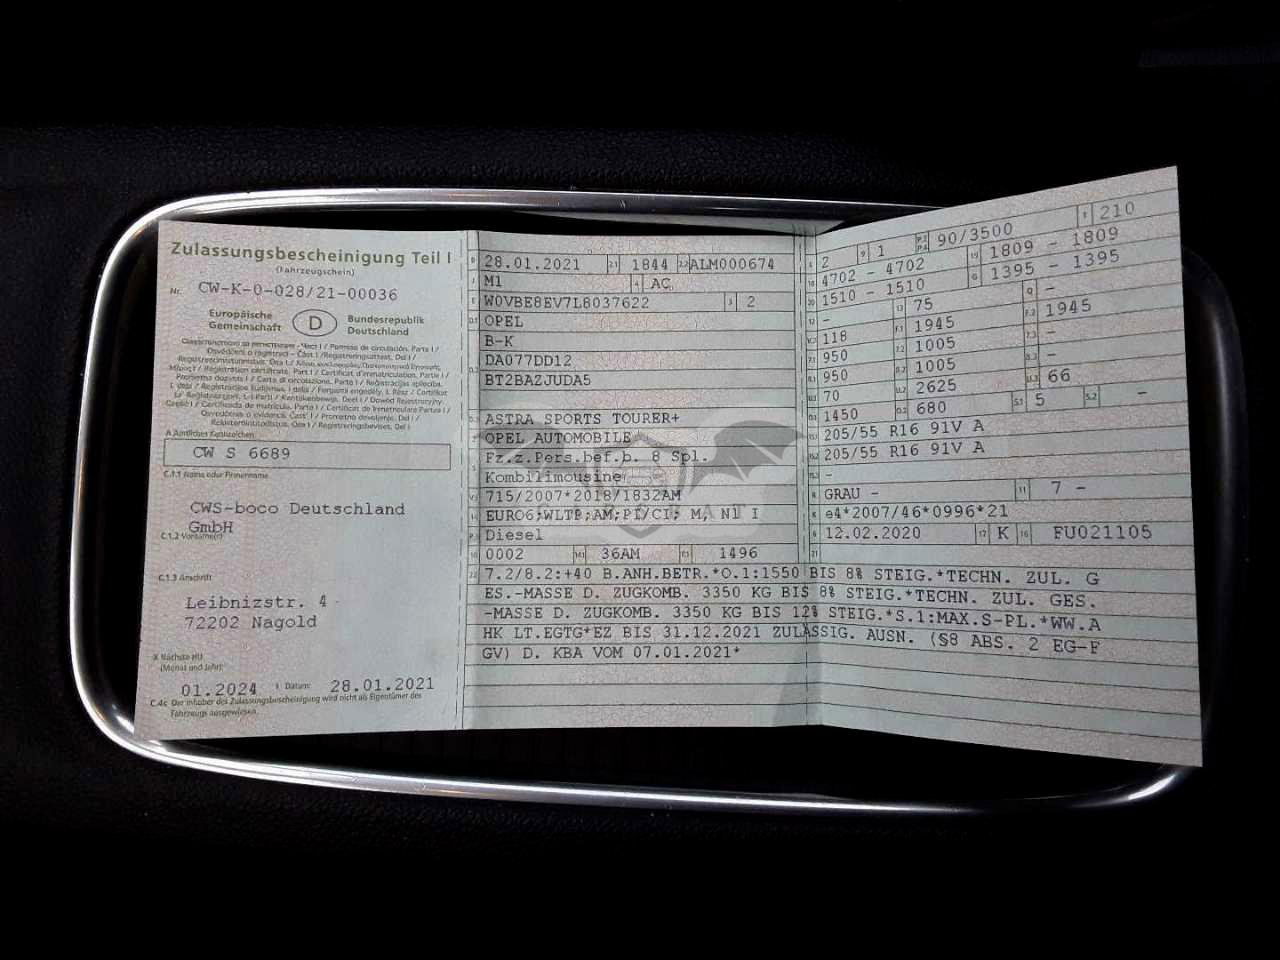 Zulassungsbescheinigung Teil I
(Fahrzeugschein)
Nr. CW-K-0-028/21-00036
Europäische Gemeinschaft
D
Bundesrepublik Deutschland
A Amtliches Kennzeichen
CW S 6689
C.1.1 Name oder Firmenname
CWS-boco Deutschland
GmbH
C.1.2 Vorname(n)
C.1.3 Anschrift
Leibnizstr. 4
72202 Nagold
X Nächste HU
(Monat und Jahr)
01.2024 I Datum: 28.01.2021
C.4c Der Inhaber der Zulassungsbescheinigung wird nicht als Eigentümer des
Fahrzeugs ausgewiesen.
B 28.01.2021 2.1 1844 2.2 ALM000674
J M1 4 AC
E W0VBE8EV7L8037622 3 2
D.1 OPEL
B-K
D.2 DA077DD12
BT2BAZJUDA5
D.3 ASTRA SPORTS TOURER+
2 OPEL AUTOMOBILE
5 Fz.z.Pers.bef.b. 8 Spl.
Kombilimousine
V.9 715/2007*2018/1832AM
14 EURO6;WLTP;AM;PI/CI; M, N1 I
P.3 Diesel
10 0002 14.1 36AM P.1 1496
22 7.2/8.2:+40 B.ANH.BETR.*O.1:1550 BIS 8% STEIG.*TECHN. ZUL. G
ES.-MASSE D. ZUGKOMB. 3350 KG BIS 8% STEIG.*TECHN. ZUL. GES.
-MASSE D. ZUGKOMB. 3350 KG BIS 12% STEIG.*S.1:MAX.S-PL.*WW.A
HK LT.EGTG*EZ BIS 31.12.2021 ZULÄSSIG. AUSN. (§8 ABS. 2 EG-F
GV) D. KBA VOM 07.01.2021*
L 2 9 1 P.2 P.4 90/3500 T 210
18 4702 - 4702 19 1809 - 1809
20 1510 - 1510 G 1395 - 1395
12 - 13 75 Q -
V.7 118 F.1 1945 F.2 1945
7.1 950 7.2 1005 7.3 -
8.1 950 8.2 1005 8.3 -
U.1 70 U.2 2625 U.3 66
O.1 1450 O.2 680 S.1 5 S.2 -
15.1 205/55 R16 91V A
15.2 205/55 R16 91V A
15.3 -
R GRAU - 11 7 -
K e4*2007/46*0996*21
6 12.02.2020 17 K 16 FU021105
21